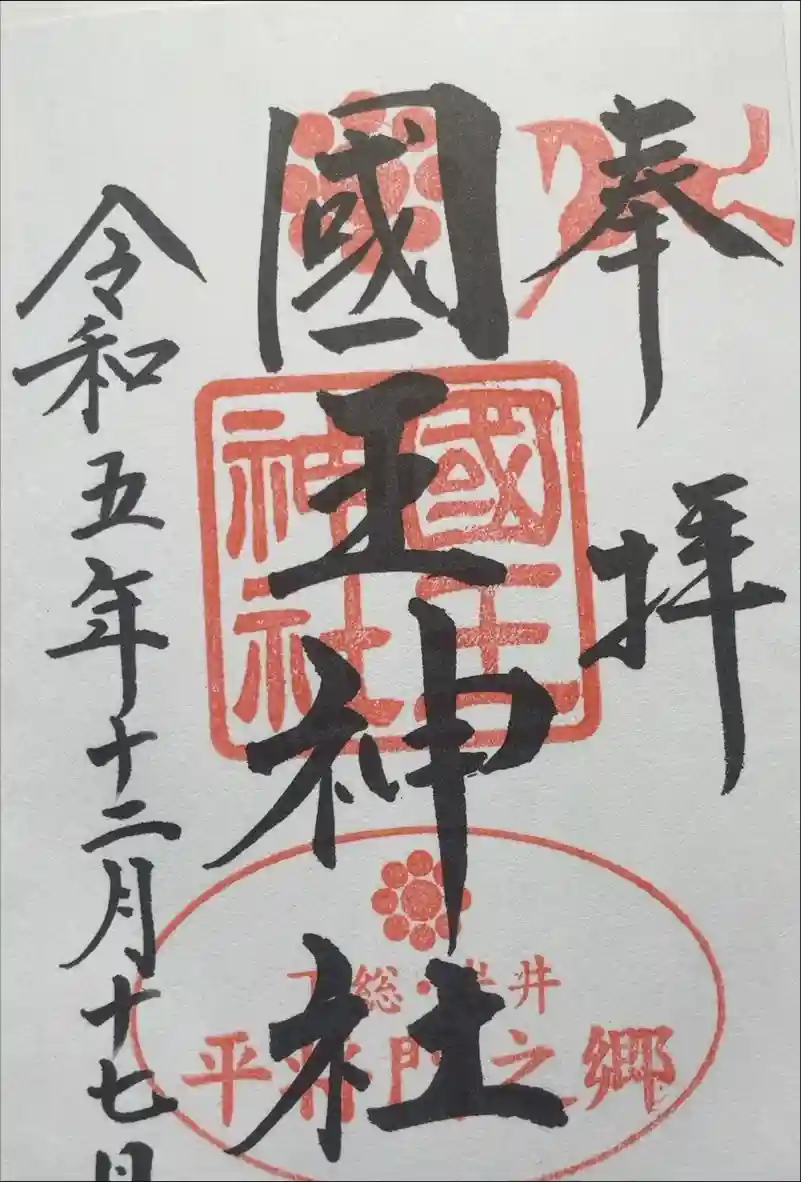 奉拝
國王神社
國王神社
下総・岩井
平将門之郷
令和五年十二月十七日